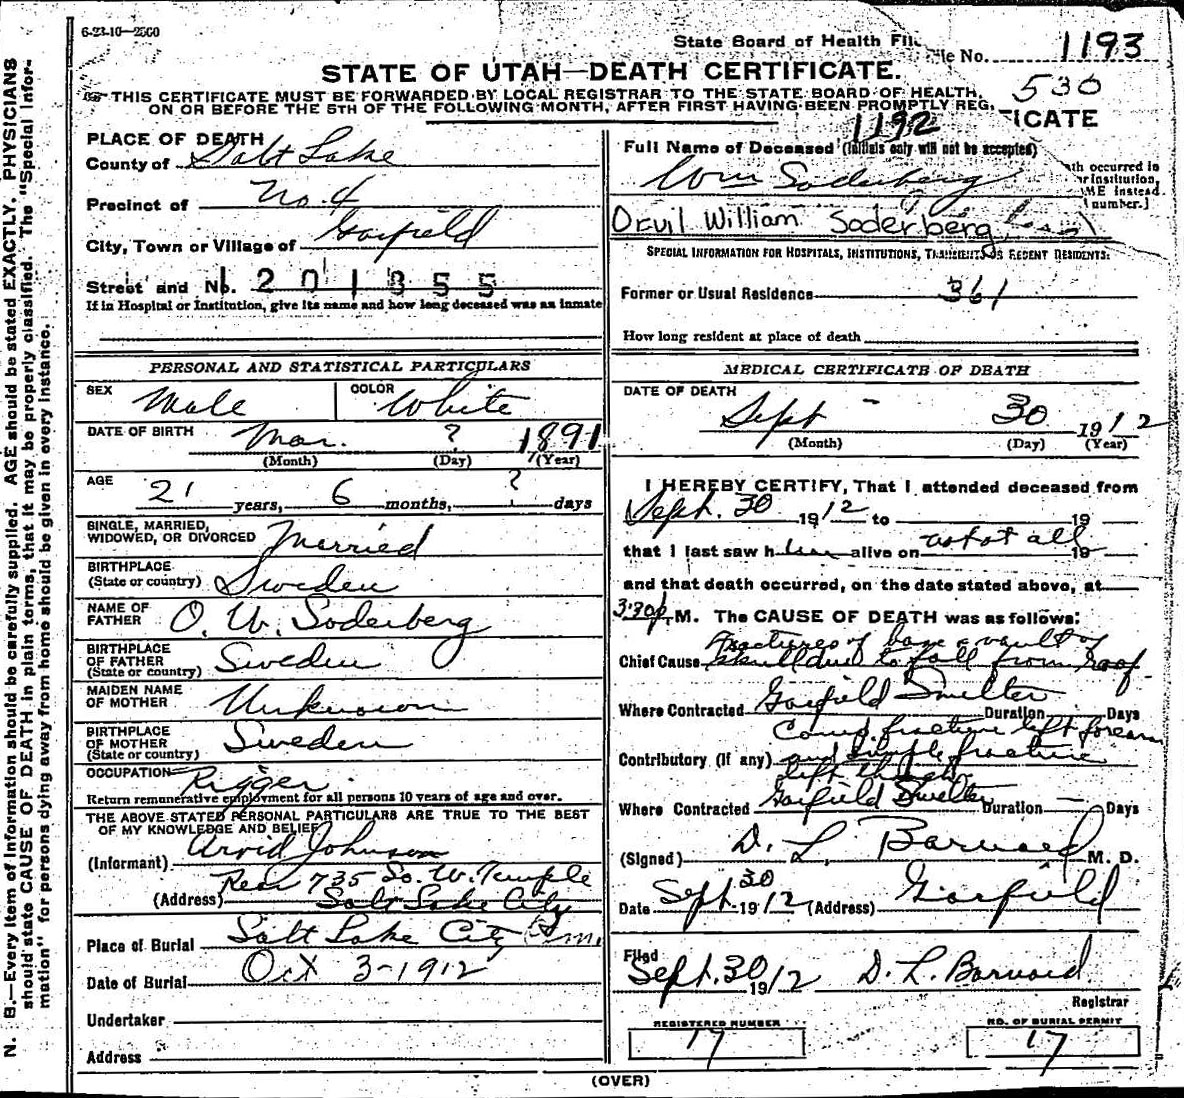 6-23-10-2500
State Board of Health File No. 1193
530
STATE OF UTAH—DEATH CERTIFICATE.
THIS CERTIFICATE MUST BE FORWARDED BY LOCAL REGISTRAR TO THE STATE BOARD OF HEALTH,
ON OR BEFORE THE 5TH OF THE FOLLOWING MONTH, AFTER FIRST HAVING BEEN PROMPTLY REG.
ICATE
PLACE OF DEATH
County of Salt Lake
Precinct of No. 4
City, Town or Village of Garfield
Street and No. 1201355
If in Hospital or Institution, give its name and how long deceased was an inmate
PERSONAL AND STATISTICAL PARTICULARS
SEX Male COLOR White
DATE OF BIRTH Mar. ? 1891
(Month) (Day) (Year)
AGE 21 years, 6 months, ? days
SINGLE, MARRIED,
WIDOWED, OR DIVORCED Married
BIRTHPLACE
(State or country) Sweden
NAME OF
FATHER O. W. Soderberg
BIRTHPLACE
OF FATHER
(State or country) Sweden
MAIDEN NAME
OF MOTHER Unknown
BIRTHPLACE
OF MOTHER
(State or country) Sweden
OCCUPATION Rigger
Return remunerative employment for all persons 10 years of age and over.
THE ABOVE STATED PERSONAL PARTICULARS ARE TRUE TO THE BEST
OF MY KNOWLEDGE AND BELIEF
(Informant) Arvid Johnson
Rear 735 So. W. Temple
(Address) Salt Lake City
Place of Burial Salt Lake City Cem.
Date of Burial Oct 3-1912
Undertaker
Address
1192
Full Name of Deceased (Initials only will not be accepted)
Wm Soderberg
th occurred in
r institution,
ME instead
number.]
Orvil William Soderberg
SPECIAL INFORMATION FOR HOSPITALS, INSTITUTIONS, TRANSIENTS OR RECENT RESIDENTS:
Former or Usual Residence 361
How long resident at place of death
MEDICAL CERTIFICATE OF DEATH
DATE OF DEATH
Sept - 30 1912
(Month) (Day) (Year)
I HEREBY CERTIFY, That I attended deceased from
Sept. 30 1912 to 19
that I last saw him alive on not at all 19
and that death occurred, on the date stated above, at
3:30p. M. The CAUSE OF DEATH was as follows:
Fractures of base & vault of
Chief Cause skull due to fall from roof
Garfield Smelter
Where Contracted Duration Days
Comp. fracture left forearm
Contributory (If any) and simple fracture
left thigh
Where Contracted Garfield Smelter Duration — Days
(Signed) D. L. Barnard M. D.
Date Sept. 30 1912 (Address) Garfield
Filed
Sept. 30 1912 D. L. Barnard
Registrar
REGISTERED NUMBER
17
NO. OF BURIAL PERMIT
17
(OVER)
N. B.—Every item of information should be carefully supplied. AGE should be stated EXACTLY. PHYSICIANS
should state CAUSE OF DEATH in plain terms, that it may be properly classified. The "Special Infor-
mation" for persons dying away from home should be given in every instance.